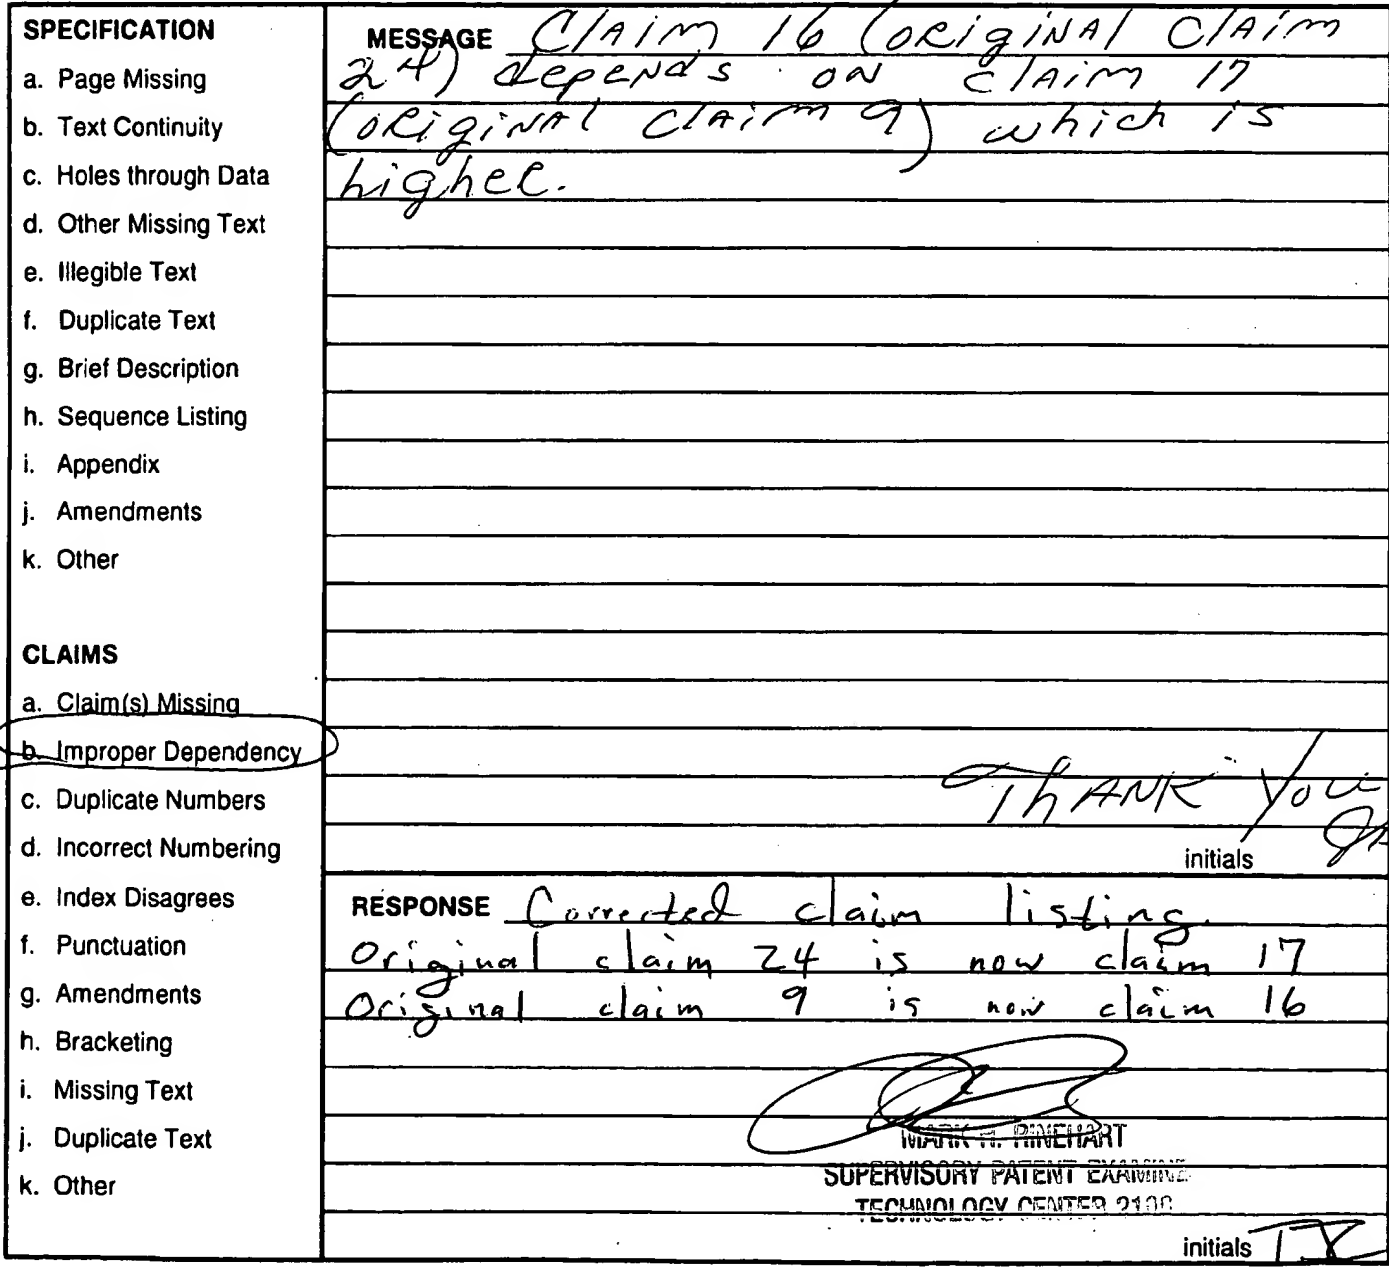 SPECIFICATION
a. Page Missing
b. Text Continuity
c. Holes through Data
d. Other Missing Text
e. Illegible Text
f. Duplicate Text
g. Brief Description
h. Sequence Listing
i. Appendix
j. Amendments
k. Other
CLAIMS
a. Claim(s) Missing
b. Improper Dependency
c. Duplicate Numbers
d. Incorrect Numbering
e. Index Disagrees
f. Punctuation
g. Amendments
h. Bracketing
i. Missing Text
j. Duplicate Text
k. Other
MESSAGE Claim 16 (original claim
24) depends on claim 17
(original claim 9) which is
higher.
Thank You
initials
RESPONSE Corrected claim listing.
Original claim 24 is now claim 17
Original claim 9 is now claim 16
MARK H. RINEHART
SUPERVISORY PATENT EXAMINE
TECHNOLOGY CENTER 2100
initials